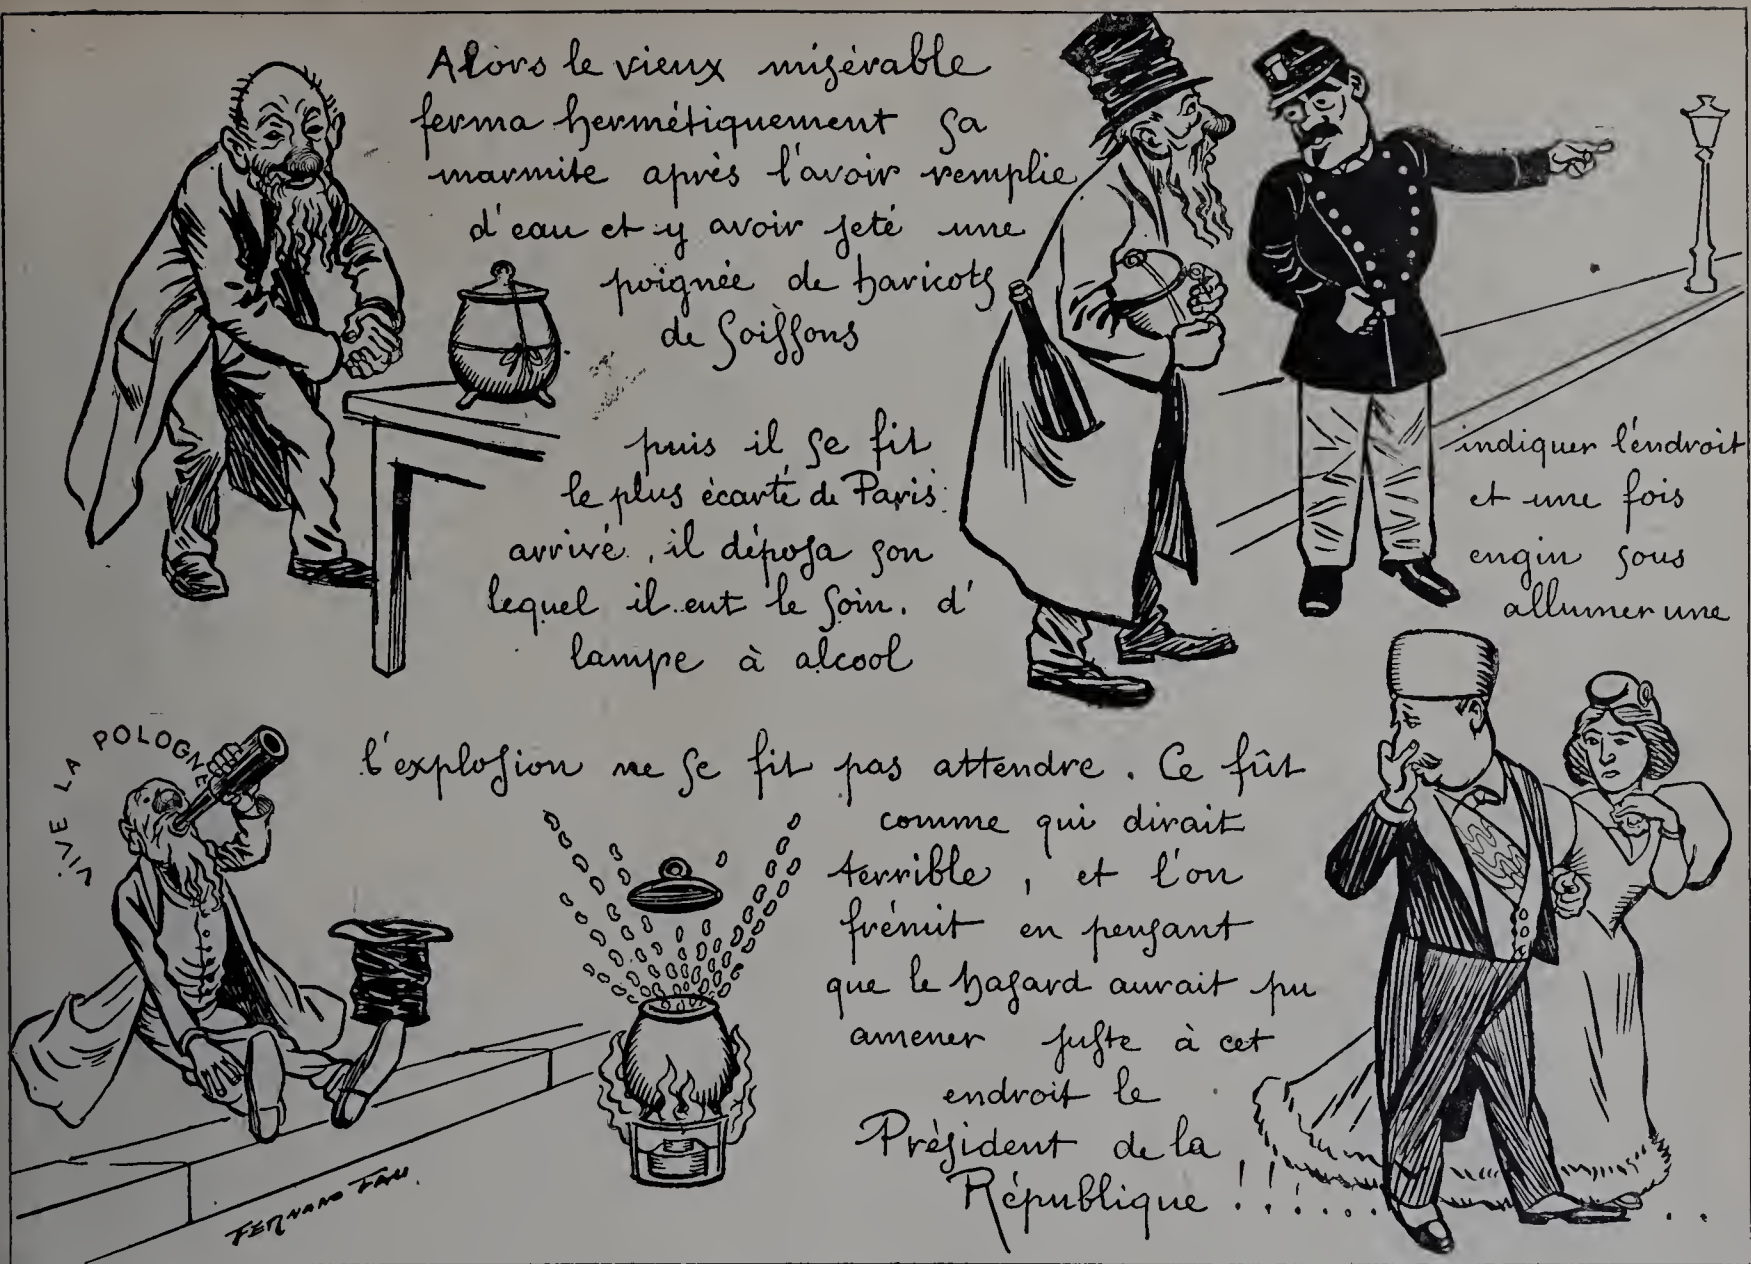 Alors le vieux misérable
ferma hermétiquement sa
marmite après l'avoir remplie
d'eau et y avoir jeté une
poignée de haricots
de Soissons
puis il se fit indiquer l'endroit
le plus écarté de Paris et une fois
arrivé, il déposa son engin sous
lequel il eut le soin d'allumer une
lampe à alcool
VIVE LA POLOGNE
l'explosion ne se fit pas attendre. Ce fût
comme qui dirait
terrible, et l'on
frémit en pensant
que le hasard aurait pu
amener juste à cet
endroit le
Président de la
République !!!.....
FERNAND FAU.